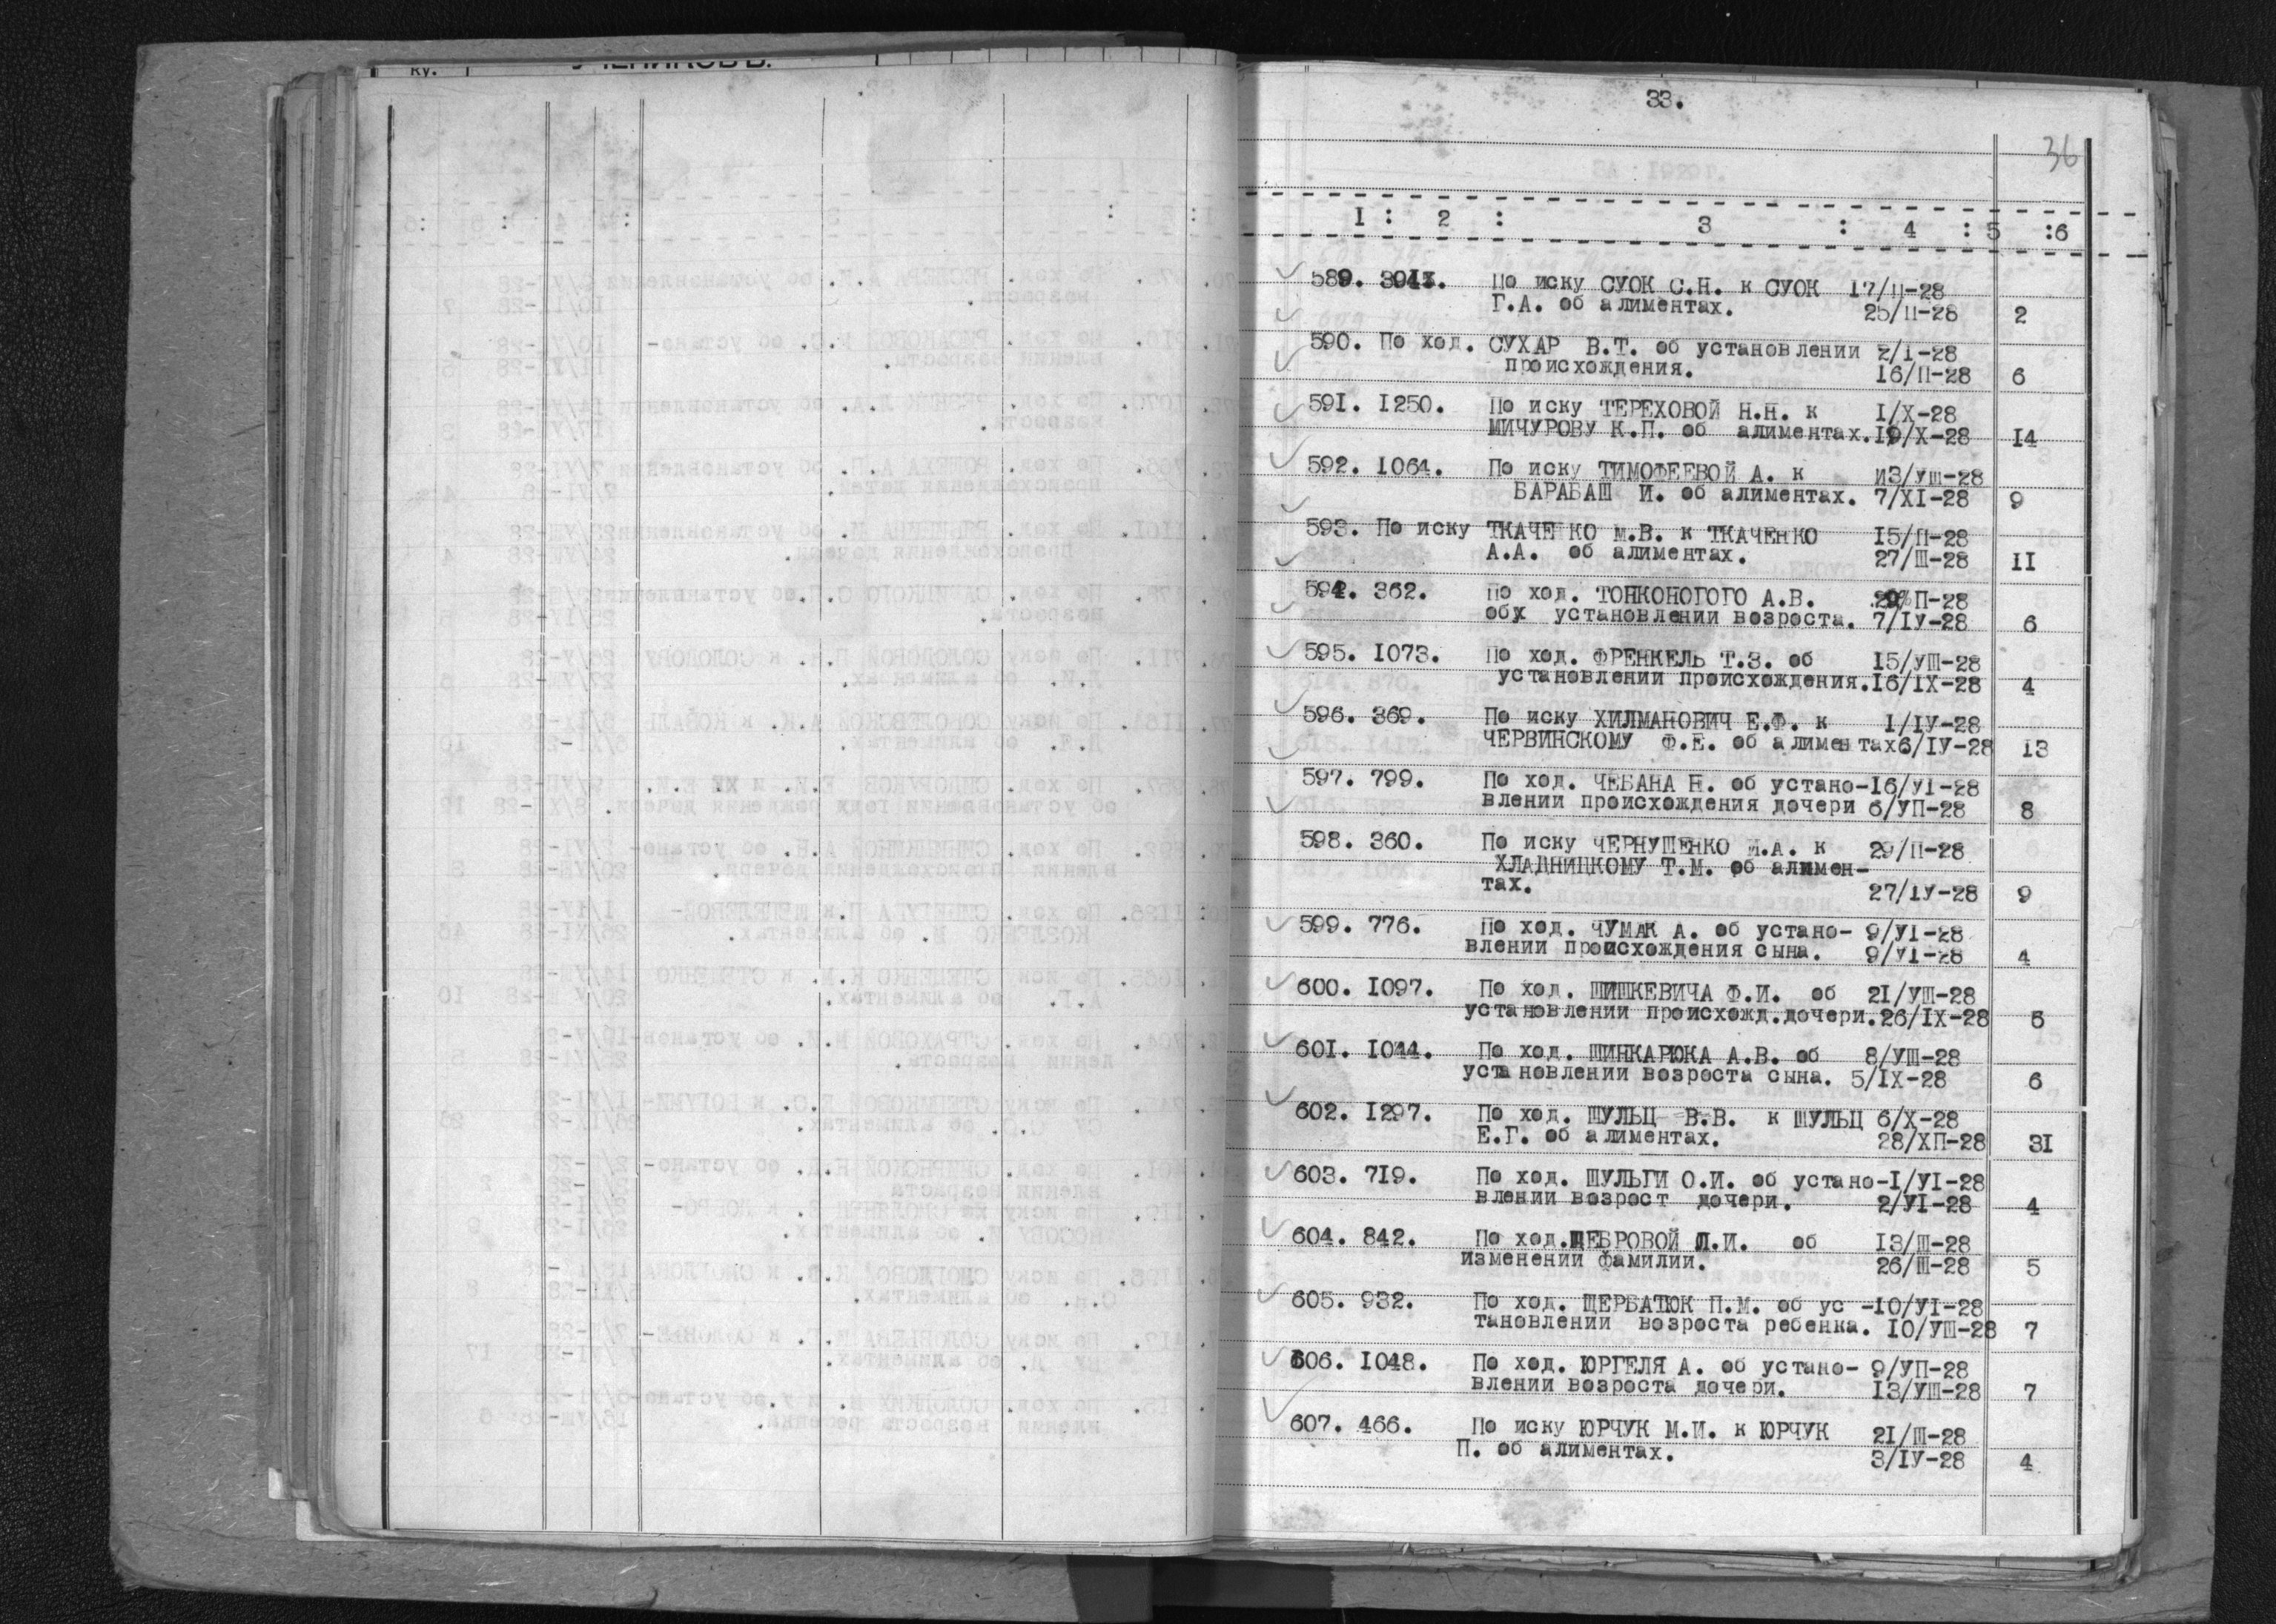 ку.
33.
36
1 : 2 : 3 : 4 : 5 :6
589. 391х. По иску СУОК С.Н. к СУОК 17/П-28
Г.А. об алиментах. 25/П-28 2
590. По ход. СУХАР В.Т. об установлении 2/I-28
происхождения. 16/П-28 6
591. 1250. По иску ТЕРЕХОВОЙ Н.Н. к I/Х-28
МИЧУРОВУ К.П. об алиментах. 19/Х-28 14
592. 1064. По иску ТИМОФЕЕВОЙ А. к и3/УШ-28
БАРАБАШ И. об алиментах. 7/ХI-28 9
593. По иску ТКАЧЕНКО М.В. к ТКАЧЕНКО 15/П-28
А.А. об алиментах. 27/Ш-28 11
594. 362. По ход. ТОНКОНОГОГО А.В. 29/П-28
обх установлении возроста. 7/IУ-28 6
595. 1073. По ход. ФРЕНКЕЛЬ Т.З. об 15/УШ-28
установлении происхождения. 16/IХ-28 4
596. 369. По иску ХИЛМАНОВИЧ Е.Ф. к I/IУ-28
ЧЕРВИНСКОМУ Ф.Е. об алиментах 6/IУ-28 13
597. 799. По ход. ЧЕБАНА Н. об устано- 16/УI-28
влении происхождения дочери 6/УП-28 8
598. 360. По иску ЧЕРНУШЕНКО М.А. к 29/П-28
ХЛАДНИЦКОМУ Т.М. об алимен-
тах. 27/IУ-28 9
599. 776. По ход. ЧУМАК А. об устано- 9/УI-28
влении происхождения сына. 9/УI-28 4
600. 1097. По ход. ШИШКЕВИЧА Ф.И. об 21/УШ-28
установлении происхожд.дочери. 26/IХ-28 5
601. 1044. По ход. ШИНКАРЮКА А.В. об 8/УШ-28
установлении возроста сына. 5/IХ-28 6
602. 1297. По ход. ШУЛЬЦ В.В. к ШУЛЬЦ 6/Х-28
Е.Г. об алиментах. 28/ХП-28 31
603. 719. По ход. ШУЛЬГИ О.И. об устано- I/УI-28
влении возрост дочери. 2/УI-28 4
604. 842. По ход. ЩЕБРОВОЙ Л.И. об 13/Ш-28
изменении фамилии. 26/Ш-28 5
605. 932. По ход. ЩЕРБАТЮК П.М. об ус - 10/УI-28
тановлении возроста ребенка. 10/УШ-28 7
606. 1048. По ход. ЮРГЕЛЯ А. об устано- 9/УП-28
влении возроста дочери. 13/УШ-28 7
607. 466. По иску ЮРЧУК М.И. к ЮРЧУК 21/Ш-28
П. об алиментах. 3/IУ-28 4